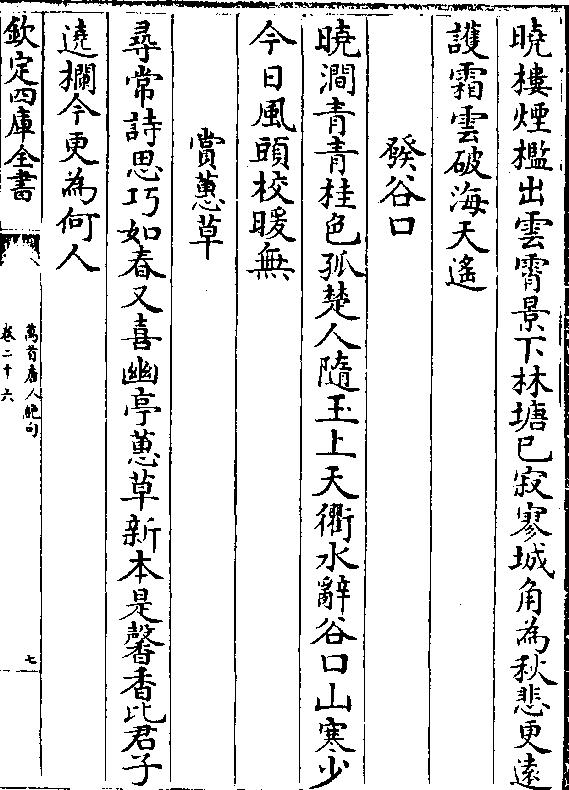 曉樓煙檻出雲霄景下林塘已寂寥城角為秋悲更遠
護霜雲破海天遙
發谷口
曉澗青青桂色孤楚人隨玉上天衢水辭谷口山寒少
今日風頭校暖無
賞蕙草
尋常詩思巧如春又喜幽亭蕙草新本是馨香比君子
遶欄今更為何人
欽定四庫全書
萬首唐人絶句
卷二十六
七